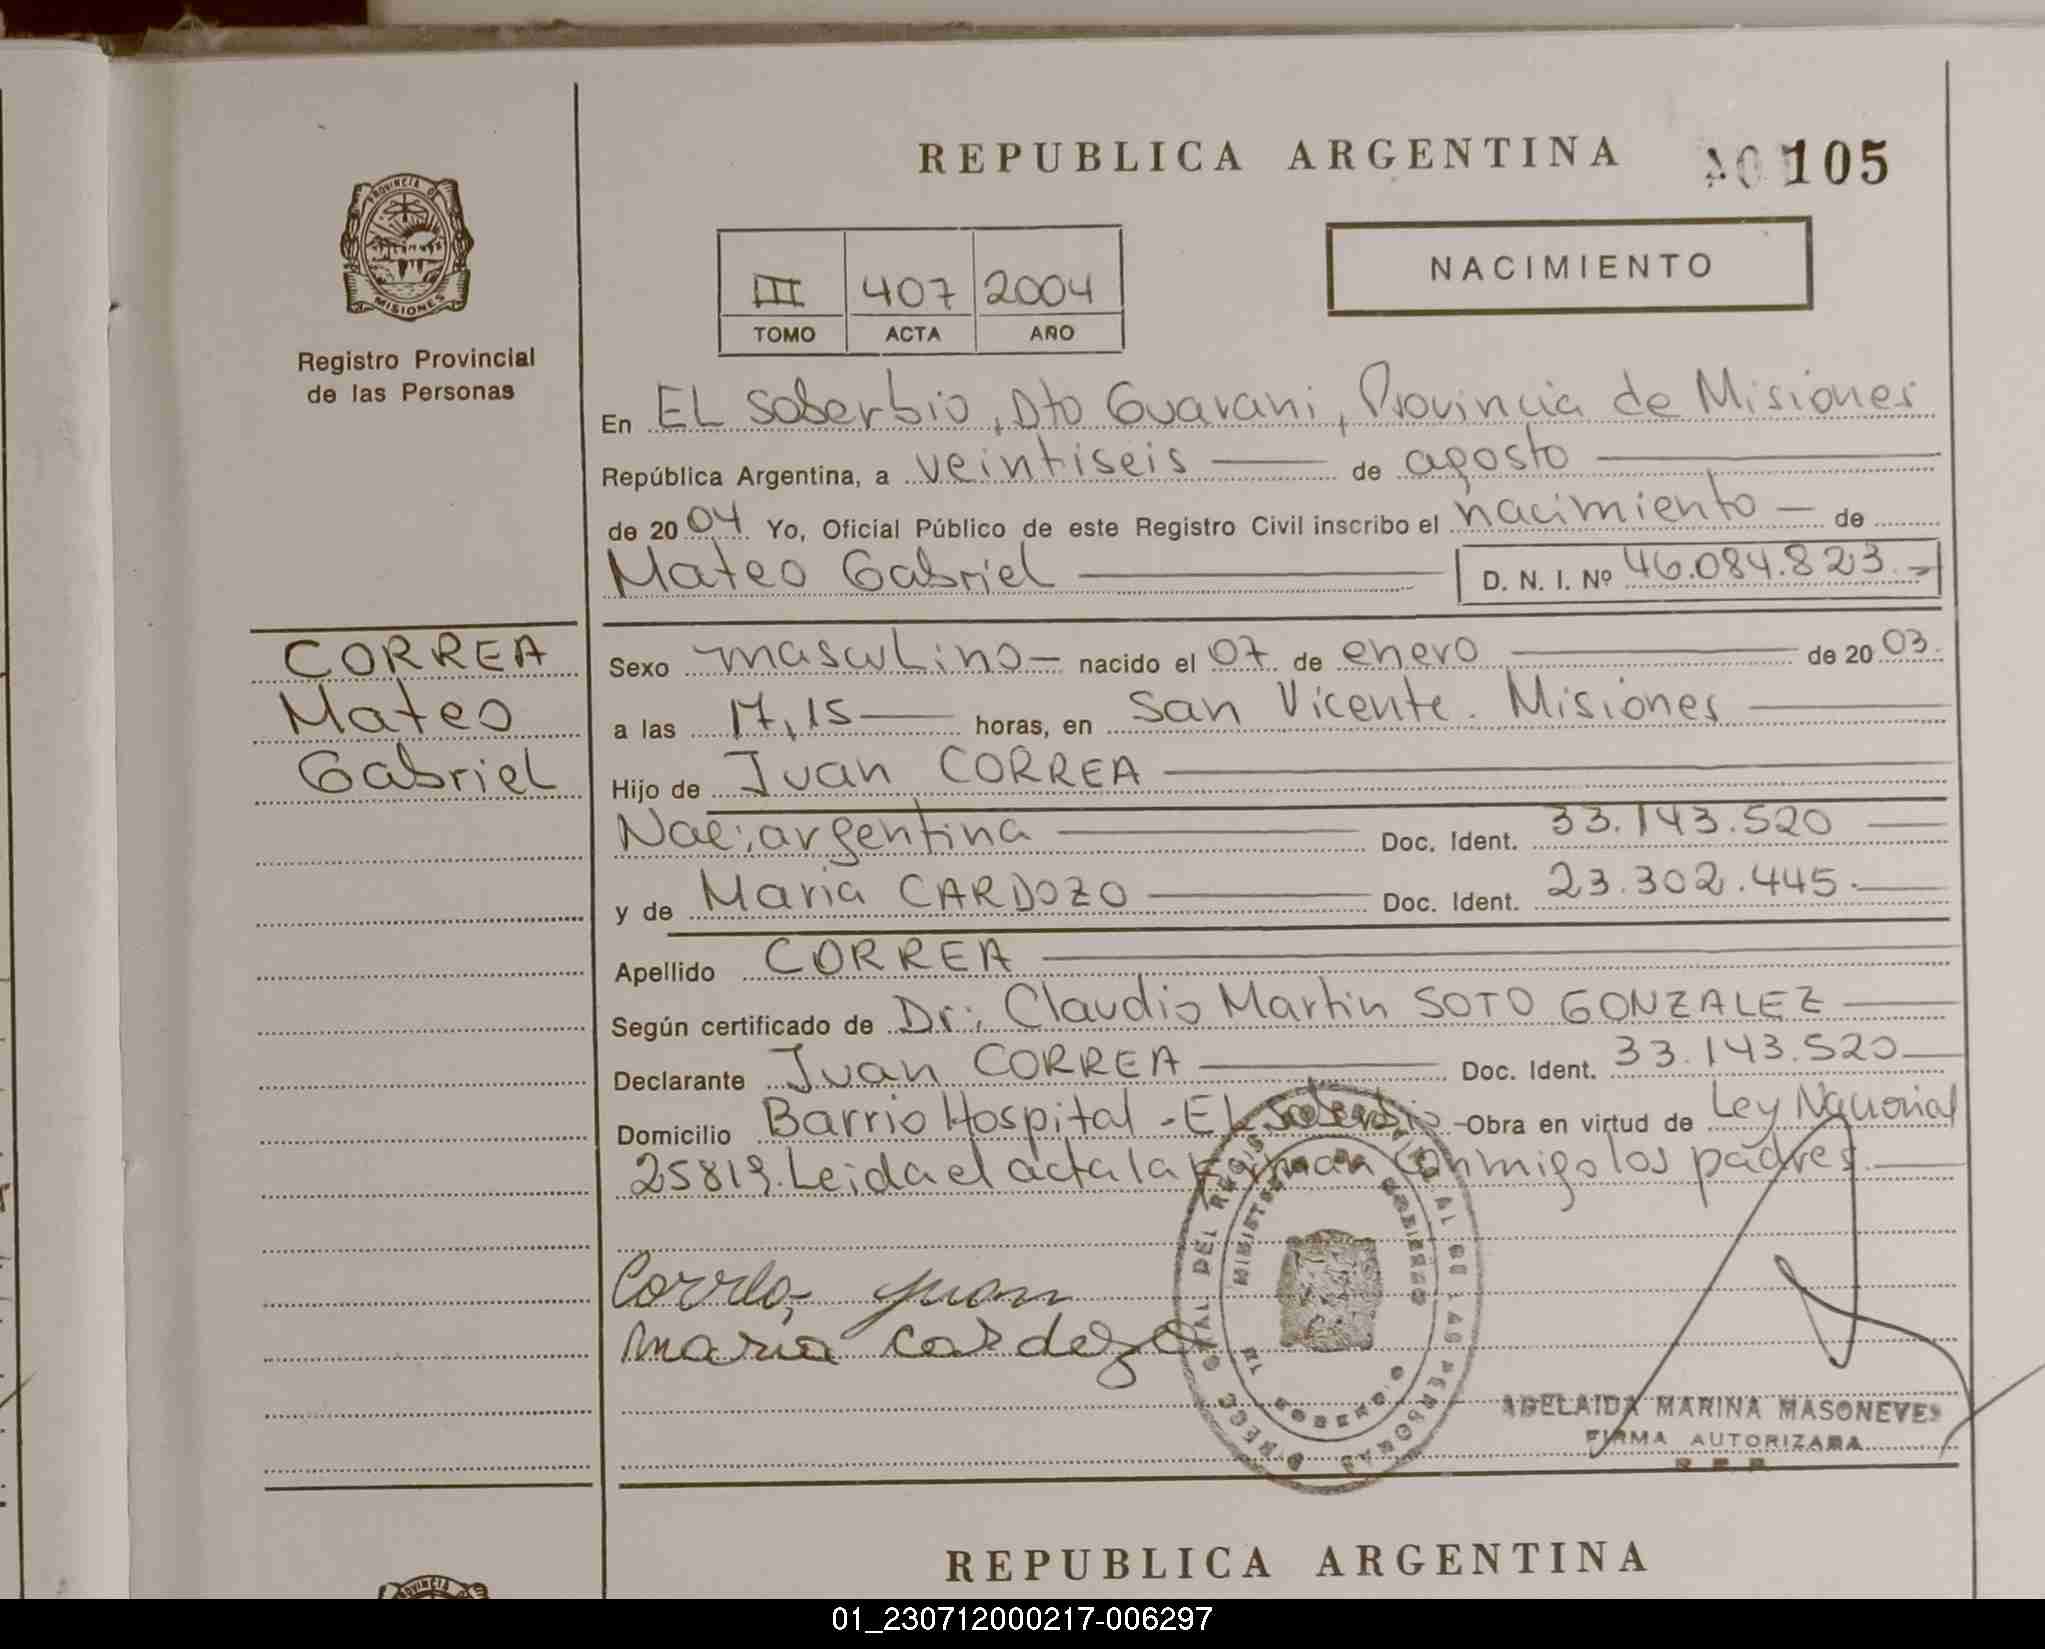 REPUBLICA ARGENTINA 105
PROVINCIA DE
MISIONES
Registro Provincial
de las Personas
NACIMIENTO
III 407 2004
TOMO ACTA AÑO
En EL Soberbio, Dto Guarani, Provincia de Misiones
República Argentina, a veintiseis de agosto
de 2004 Yo, Oficial Público de este Registro Civil inscribo el nacimiento de
Mateo Gabriel D. N. I. Nº 46.084.823.-
CORREA
Mateo
Gabriel
Sexo masculino nacido el 07 de enero de 2003.
a las 17,15 horas, en San Vicente. Misiones
Hijo de Juan CORREA
Nac: argentina Doc. Ident. 33.143.520
y de Maria CARDOZO Doc. Ident. 23.302.445.
Apellido CORREA
Según certificado de Dr: Claudio Martin SOTO GONZALEZ
Declarante Juan CORREA Doc. Ident. 33.143.520
Domicilio Barrio Hospital - EL Soberbio - Obra en virtud de Ley Nacional
25819. Leida el acta la firman conmigo los padres.
Correa, Juan
maria cardozo
ADELAIDA MARINA MASONEVES
FIRMA AUTORIZADA
REPUBLICA ARGENTINA
PROVINCIA
01_230712000217-006297